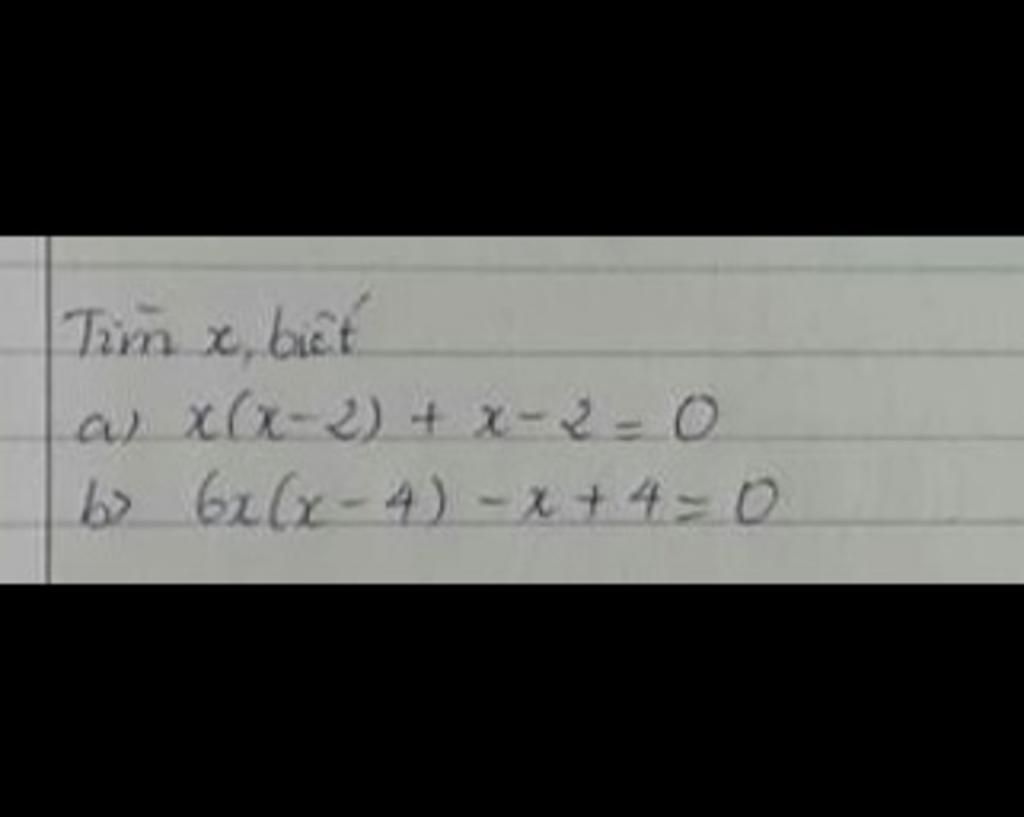 Tìm x, biết
a) x(x-2) + x-2 = 0
b) 6x(x-4) -x+4 = 0